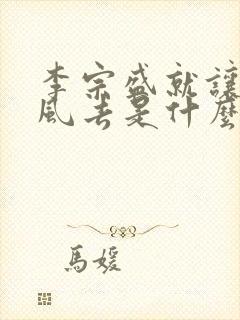 李宗盛就讓
風去是什麼
馬媛